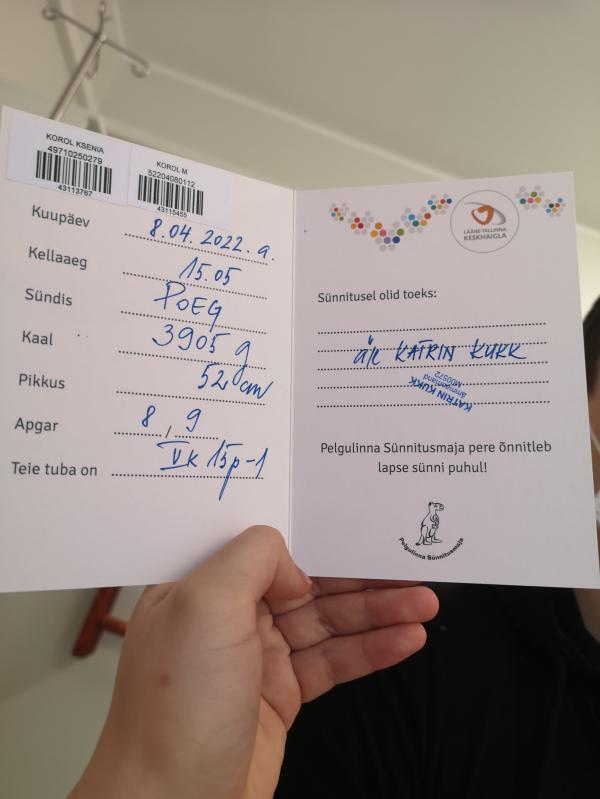 KOROL KSENIA
49710250279
43113767
KOROL M
52204080112
43115455
Kuupäev 8.04.2022.a.
Kellaaeg 15.05
Sündis POEG
Kaal 3905 g
Pikkus 52 cm
Apgar 8, 9
Teie tuba on VK 15p-1
LÄÄNE-TALLINNA
KESKHAIGLA
Sünnitusel olid toeks:
ä/e KATRIN KUKK
KATRIN KUKK
ämmaemand
M00572
Pelgulinna Sünnitusmaja pere õnnitleb
lapse sünni puhul!
Pelgulinna Sünnitusmaja